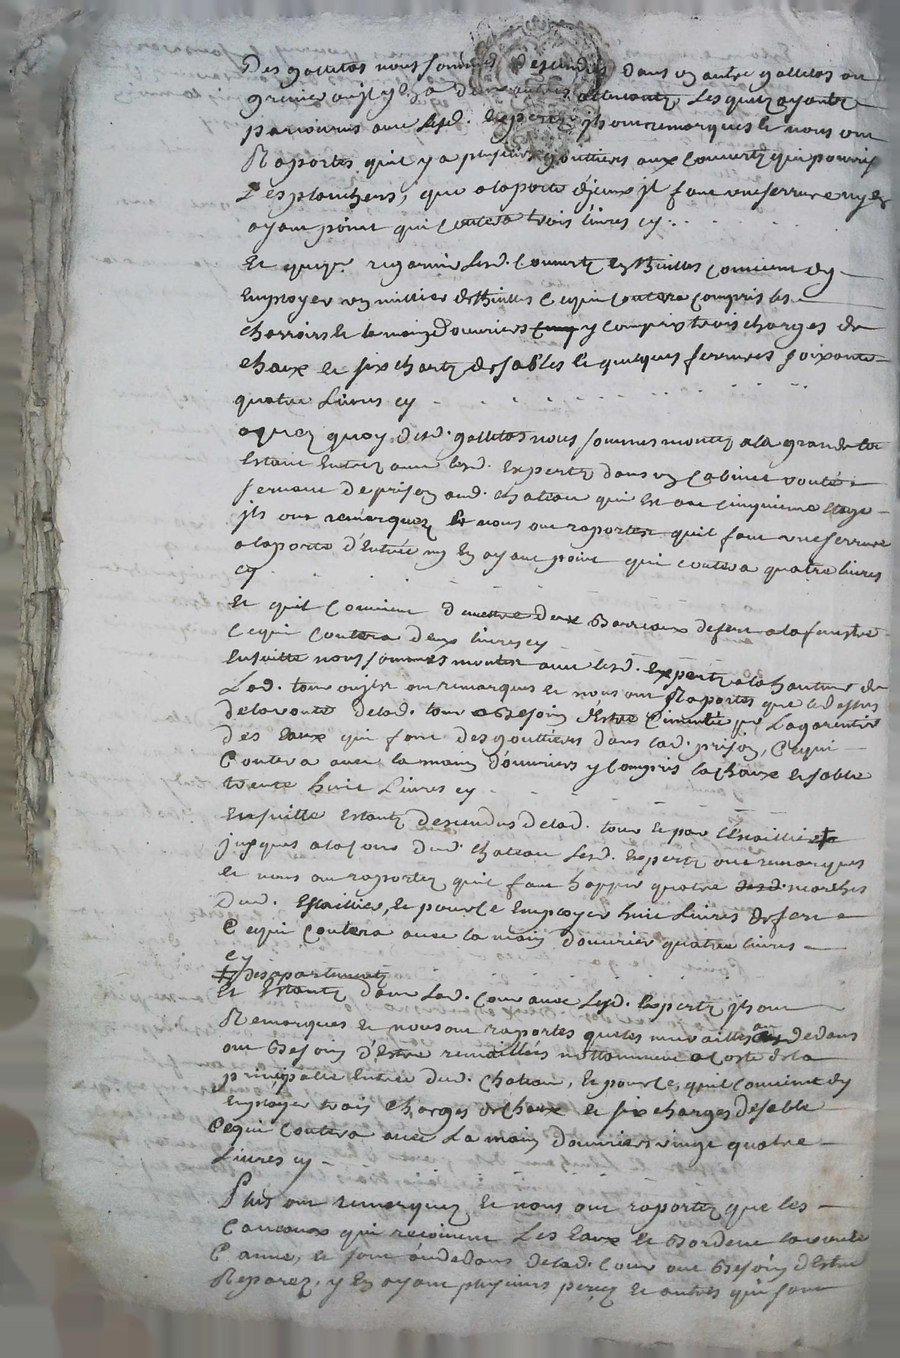 Des gallitas nous sommes dessendus dans un autre gallitas ou
grenier
parcourus avec lesd. experts ils ont remarques et nous ont
Raportes quil y a plusieurs gouttiers aux couverts qui pourris
Les planchers, que a la porte diceux jl faut une serrure ny en
ayant point qui coutera trois livres cy
Et que pr regarnir lesd. couverts en thuilles convient dy
Employer un millier de thuilles ce qui coutera compris les
charroirs et la main d'ouvriers y compris trois charges de
chaux et six charts de sables et quelques ferrures soixante
quatre Livres cy
apres quoy desd. gallitas nous sommes montes a la grande tour
Estant Entres avec lesd. Experts dans un Cabinet vouté
servant de prison aud. chateau qui est au cinquieme etage
jls ont remarquez et nous ont raportes quil faut une serrure
a la porte d'Entrée ny En ayant point qui coutera quatre livres
cy
Et quil convient d'emettre deux Barriaux de fert a la fenestre
Ce qui Coutera deux livres cy
Ensuitte nous sommes montes avec lesd. Experts a la hauteur de
Lad. tour ou jls ont remarques et nous ont Raportes que le dessus
de la voute de lad. tour a Besoin d'Estre Cimenté pr La garentir
des Eaux qui font des gouttiers dans lad. prison, Ce qui
Coutera avec la main d'ouvriers y compris la chaux et sable
trente huit Livres cy
Ensuitte Estants dessendus de lad. tour et par l'Escaillier ‡
jusques a la cour dud. chateau Lesd. Experts ont remarques
et nous ont raportez quil faut happer quatre marches
Dud. Escaillier, et pour ce Employer huit Livres de fert
Ce qui Coutera avec la main d'ouvrier quatre livres
cy
‡ des apartements
Et Estants dans Lad. Cour avec Lesd. Experts jls ont
Remarques et nous ont raportes que les murailles au dedans
ont Besoin d'Estre remaillées nottament a Coste de la
principalle Entrée dud. Chateau, Et pour ce, quil convient dy
Employer trois Charges de Chaux et six charges de sable
Ce qui Coutera avec La main d'ouvriers vingt quatre
Livres cy
Plus ont remarquez et nous ont raportez que les
qui recoivent Les Eaux et Bordent la voute
et sont au dedans de lad. Cour ont Besoin d'Estre
Reparez, y En ayant plusieurs percés et autres qui sont